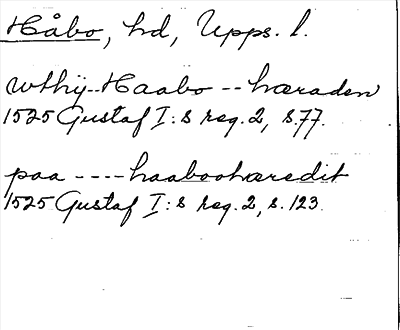 Håbo, hd, Upps. l.
wthij--Haabo--hæraden
1525 Gustaf I:s reg. 2, s. 77.
paa ---- haaboohæredit
1525 Gustaf I:s reg. 2, s. 123.